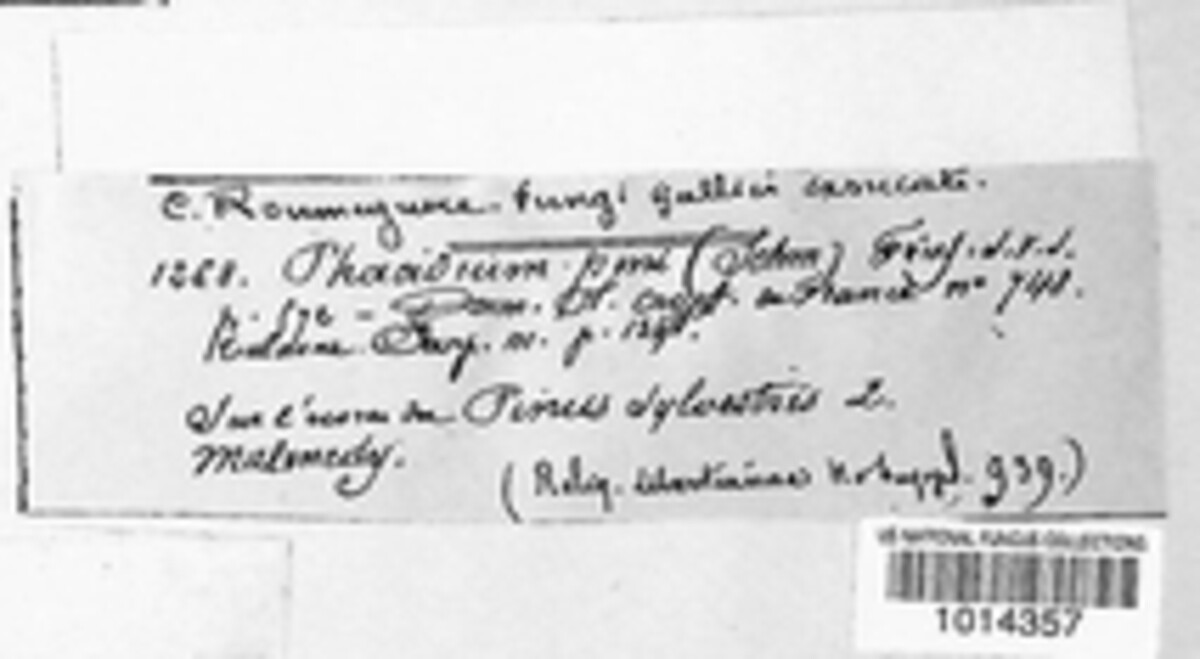 C. Roumeguere. Fungi gallici exsiccati.
1268. Phacidium pini (Schm) Fries. S.V.S.
Desm. Pl. crypt. de France nº 748.
p. 129.
Sur l'écorce du Pinus sylvestris L.
Malmedy.
(Reliq. Libertianae 939.)
US NATIONAL FUNGUS COLLECTIONS
1014357